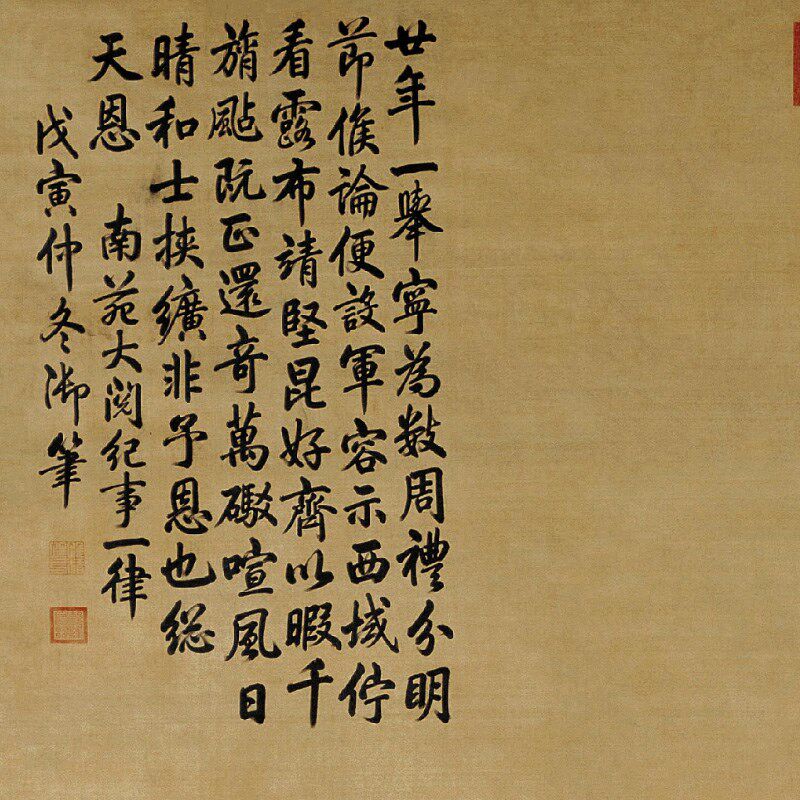 廿年一舉寧為數周禮分明
節候論便設軍容示西域佇
看露布請堅昆好齊以暇千
旓颭既正還奇萬礮喧風日
晴和士挾纊非予恩也總
天恩　南苑大閱紀事一律
戊寅仲冬御筆